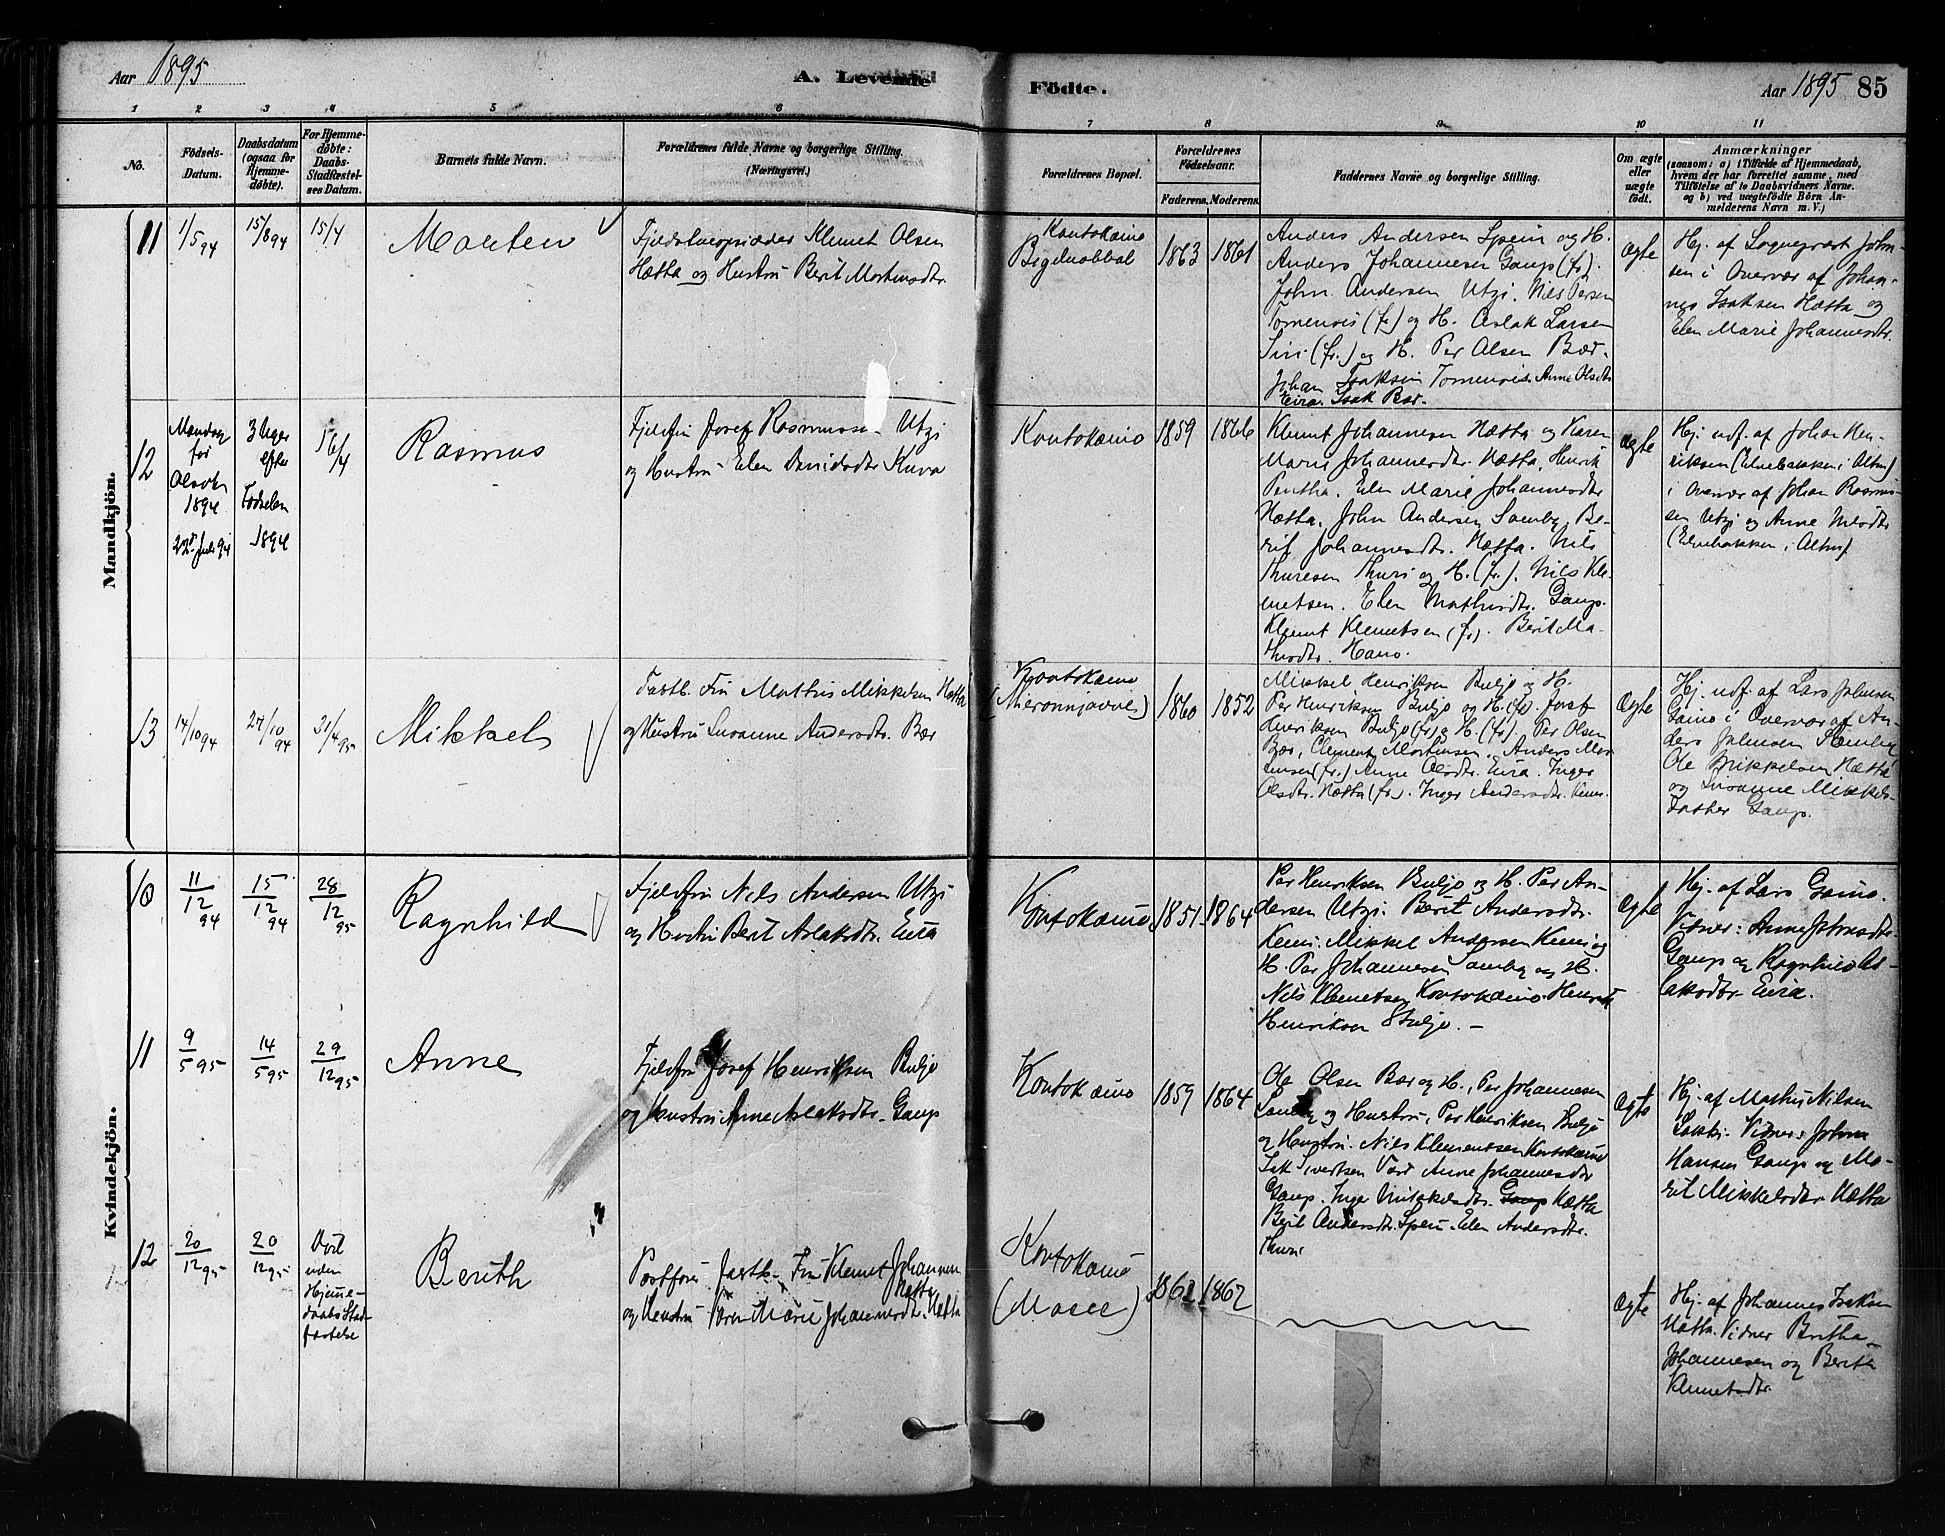 Aar 1895
A. Levende
Födte.
Aar 1895 85
1 2 3 4 5 6 7 8 9 10 11
No.
Födsels-
Datum.
Daabsdatum
(ogsaa for
Hjemme-
døbte).
For Hjemme-
döbte:
Daabs-
Stadfæstel-
ses Datum.
Barnets fulde Navn.
Forældrenes fulde Navne og borgerlige Stilling.
(Næringsvei.)
Forældrenes Bopæl.
Forældrenes
Födselsaar.
Faderens. Moderens.
Faddernes Navne og borgerlige Stilling.
Om ægte
eller
uægte
födt.
Anmærkninger
(saasom: a) i Tilfælde af Hjemmedaab,
hvem der har forrettet samme, med
Tilföielse af to Daabsvidners Navne.
og b) ved uægtefödte Börn An-
melderens Navn m. V.)
Mandkjön.
11
1/5 94
15/8 94
15/4
Morten
Klemet Olsen
Hætta og Hustru Berit Mortensdtr.
Kontokæino
1863 1861
Anders Andersen Spein og H.
Anders Johannesen Gaup (fr).
John Andersen Utzi. Nils Persen
Tornensis (fr) og H. Aslak Larsen
Siri (fr.) og H. Per Olsen Bær.
Johan Isaksen Tornensis. Anne Olsdtr
Eira. Isak Bær.
Ægte
Hj. af Sognepræst John-
sen i Overvær af Johan-
nes Isaksen Hætta og
Elen Marie Johannesdtr.
12
Mandag
før
Olsok
1894
22de Juli 94
3 Uger
efter
Fødselen
1894
16/4
Rasmus
Fjeldfin Josef Rasmussen Utzi
og Hustru Elen Davidsdtr Kuva
Kontokæino
1859 1866
Klemet Johannesen Hætta og Karen
Marie Johannesdtr. Hætta, Henrik
Pentha. Elen Marie Johannesdtr
Hætta. John Andersen Somby, Be-
rit Johannesdtr. Hætta. Nils
Thuresen Thuri og H. (fr). Nils Kle-
metsen. Elen Mathisdtr. Gaup.
Klemet Klemetsen (fr). Berit Ma-
thisdtr. Hætta
Ægte
Hj. udf. af Johan Hen-
riksen (Elvebakken i Alten)
i Overvær af Johan Rasmus-
sen Utzi og Anne Nilsdtr
(Elvebakken i Alten)
13
14/10 94
27/10 94
21/4 95
Mikkel
Fastb. Fin Mathis Mikkelsen Hætta
og Hustru Susanne Andersdtr. Bær
Kontokæino
(Mieronnjavve)
1860 1852
Mikkel Henriksen Buljo og H.
Per Henriksen Buljo og H. (fr). Josef
Henriksen Buljo (fr) og H. (fr). Per Olsen
Bær, Clement Mortensen, Anders Mor-
tensen (fr.) Anne Olsdtr. Eira. Inger
Olsdtr. Hætta (fr.). Inger Andersdtr. Kemi.
Ægte
Hj. udf. af Lars Johnsen
Gaino i Overvær af An-
ders Johnsen Somby
Ole Mikkelsen Hætta
og Susanne Mikkels-
datter Gaup.
Kvindekjön.
10
11/12 94
15/12 94
28/12 95
Ragnhild
Fjeldfin Nils Andersen Utzi
og Hustru Berit Aslaksdtr. Eira
Kontokæino
1851 1864
Per Henriksen Buljo og H. Per An-
dersen Utzi. Berit Andersdtr.
Kemi. Mikkel Andersen Kemi og
H. Per Johannesen Somby og H.
Nils Klemetsen Kontokæino. Henrik
Henriksen Buljo. –
Ægte
Hj. af Lars Gaino.
Vidner: Anne Johnsdtr.
Gaup og Ragnhild As-
laksdtr. Eira.
11
9/5 95
14/5 95
29/12 95
Anne
Fjeldfin Josef Henriksen Buljo
og Hustru Anne Aslaksdtr. Gaup
Kontokæino
1859 1864
Ole Olsen Bær og H., Per Johannesen
Somby og Hustru, Per Henriksen Buljo
og Hustru. Nils Klemensen Kontokæino
Isak Ivertsen Anne Johannesdtr
Gaup. Inger Mikkelsdtr. Gaup Hætta
Berit Andersdtr. Spein. Elen Andersdtr.
Thuri
Ægte
Hj. af Mathis Nilsen
Sokki. Vidner: Johan
Hansen Gaup og Ma-
rit Mikkelsdtr. Hætta
12
20/12 95
20/12 95
Død
uden
Hjemme-
daabs Stad-
fæstelse
Berith
Postfører fastb. Fin Klemet Johannesen
Hætta
og Hustru Karen Marie Johannesdtr. Hætta
Kontokæino
(Masee)
1862 1862
Ægte
Hj. af Johannes Isaksen
Hætta. Vidner Britha
Johannesen og Berith
Klemetsdtr.